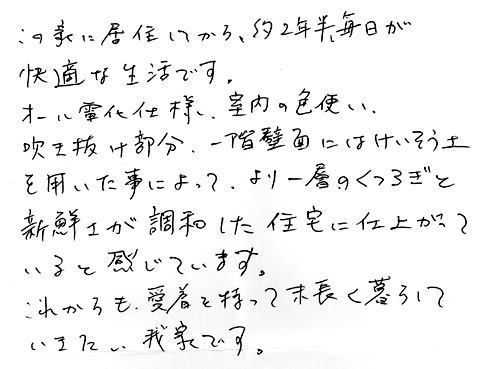 この家に居住してから、約2年半、毎日が
快適な生活です。
オール電化仕様、室内の色使い、
吹き抜け部分、一階壁面にはけいそう土
を用いた事によって、より一層のくつろぎと
新鮮さが調和した住宅に仕上がって
いると感じています。
これからも、愛着を持って末長く暮らして
いきたい我家です。